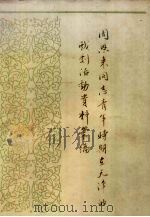 周恩来同志青年时期在天津的
戏剧活动资料汇编